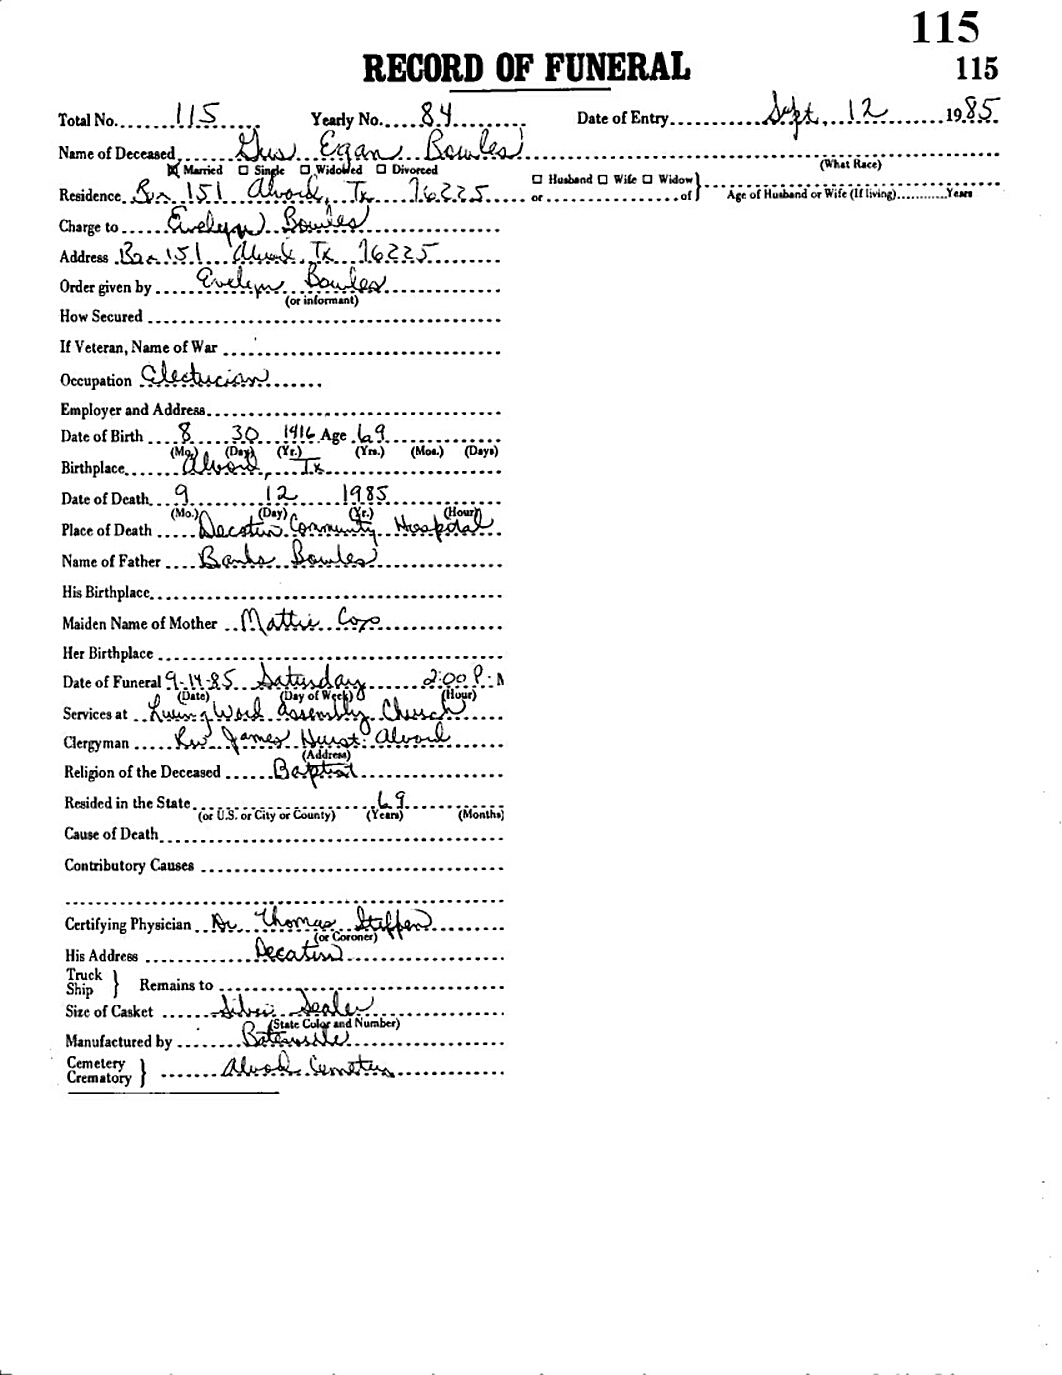 115
RECORD OF FUNERAL
115
Total No. 115 Yearly No. 84 Date of Entry Sept. 12 1985
Name of Deceased Gus Egan Bowles (What Race)
☒ Married ☐ Single ☐ Widowed ☐ Divorced
Residence Box 151 Alvord, Tx 76225 ☐ Husband ☐ Wife ☐ Widow } or of Age of Husband or Wife (If living) Years
Charge to Evelyn Bowles
Address Box 151 Alvord, Tx 76225
Order given by Evelyn Bowles
(or informant)
How Secured
If Veteran, Name of War
Occupation Electrician
Employer and Address
Date of Birth 8 30 1916 Age 69
(Mo.) (Day) (Yr.) (Yrs.) (Mos.) (Days)
Birthplace Alvord, Tx
Date of Death 9 12 1985
(Mo.) (Day) (Yr.) (Hour)
Place of Death Decatur Community Hospital
Name of Father Banks Bowles
His Birthplace
Maiden Name of Mother Mattie Cox
Her Birthplace
Date of Funeral 9-14-85 Saturday 2:00 P.M
(Date) (Day of Week) (Hour)
Services at Living Word Assembly Church
Clergyman Rev James Hurst Alvord
(Address)
Religion of the Deceased Baptist
Resided in the State 69
(or U.S. or City or County) (Years) (Months)
Cause of Death
Contributory Causes
Certifying Physician Dr Thomas Steffen
(or Coroner)
His Address Decatur
Truck
Ship } Remains to
Size of Casket Silver Sealer
(State Color and Number)
Manufactured by Batesville
Cemetery
Crematory } Alvord Cemetery